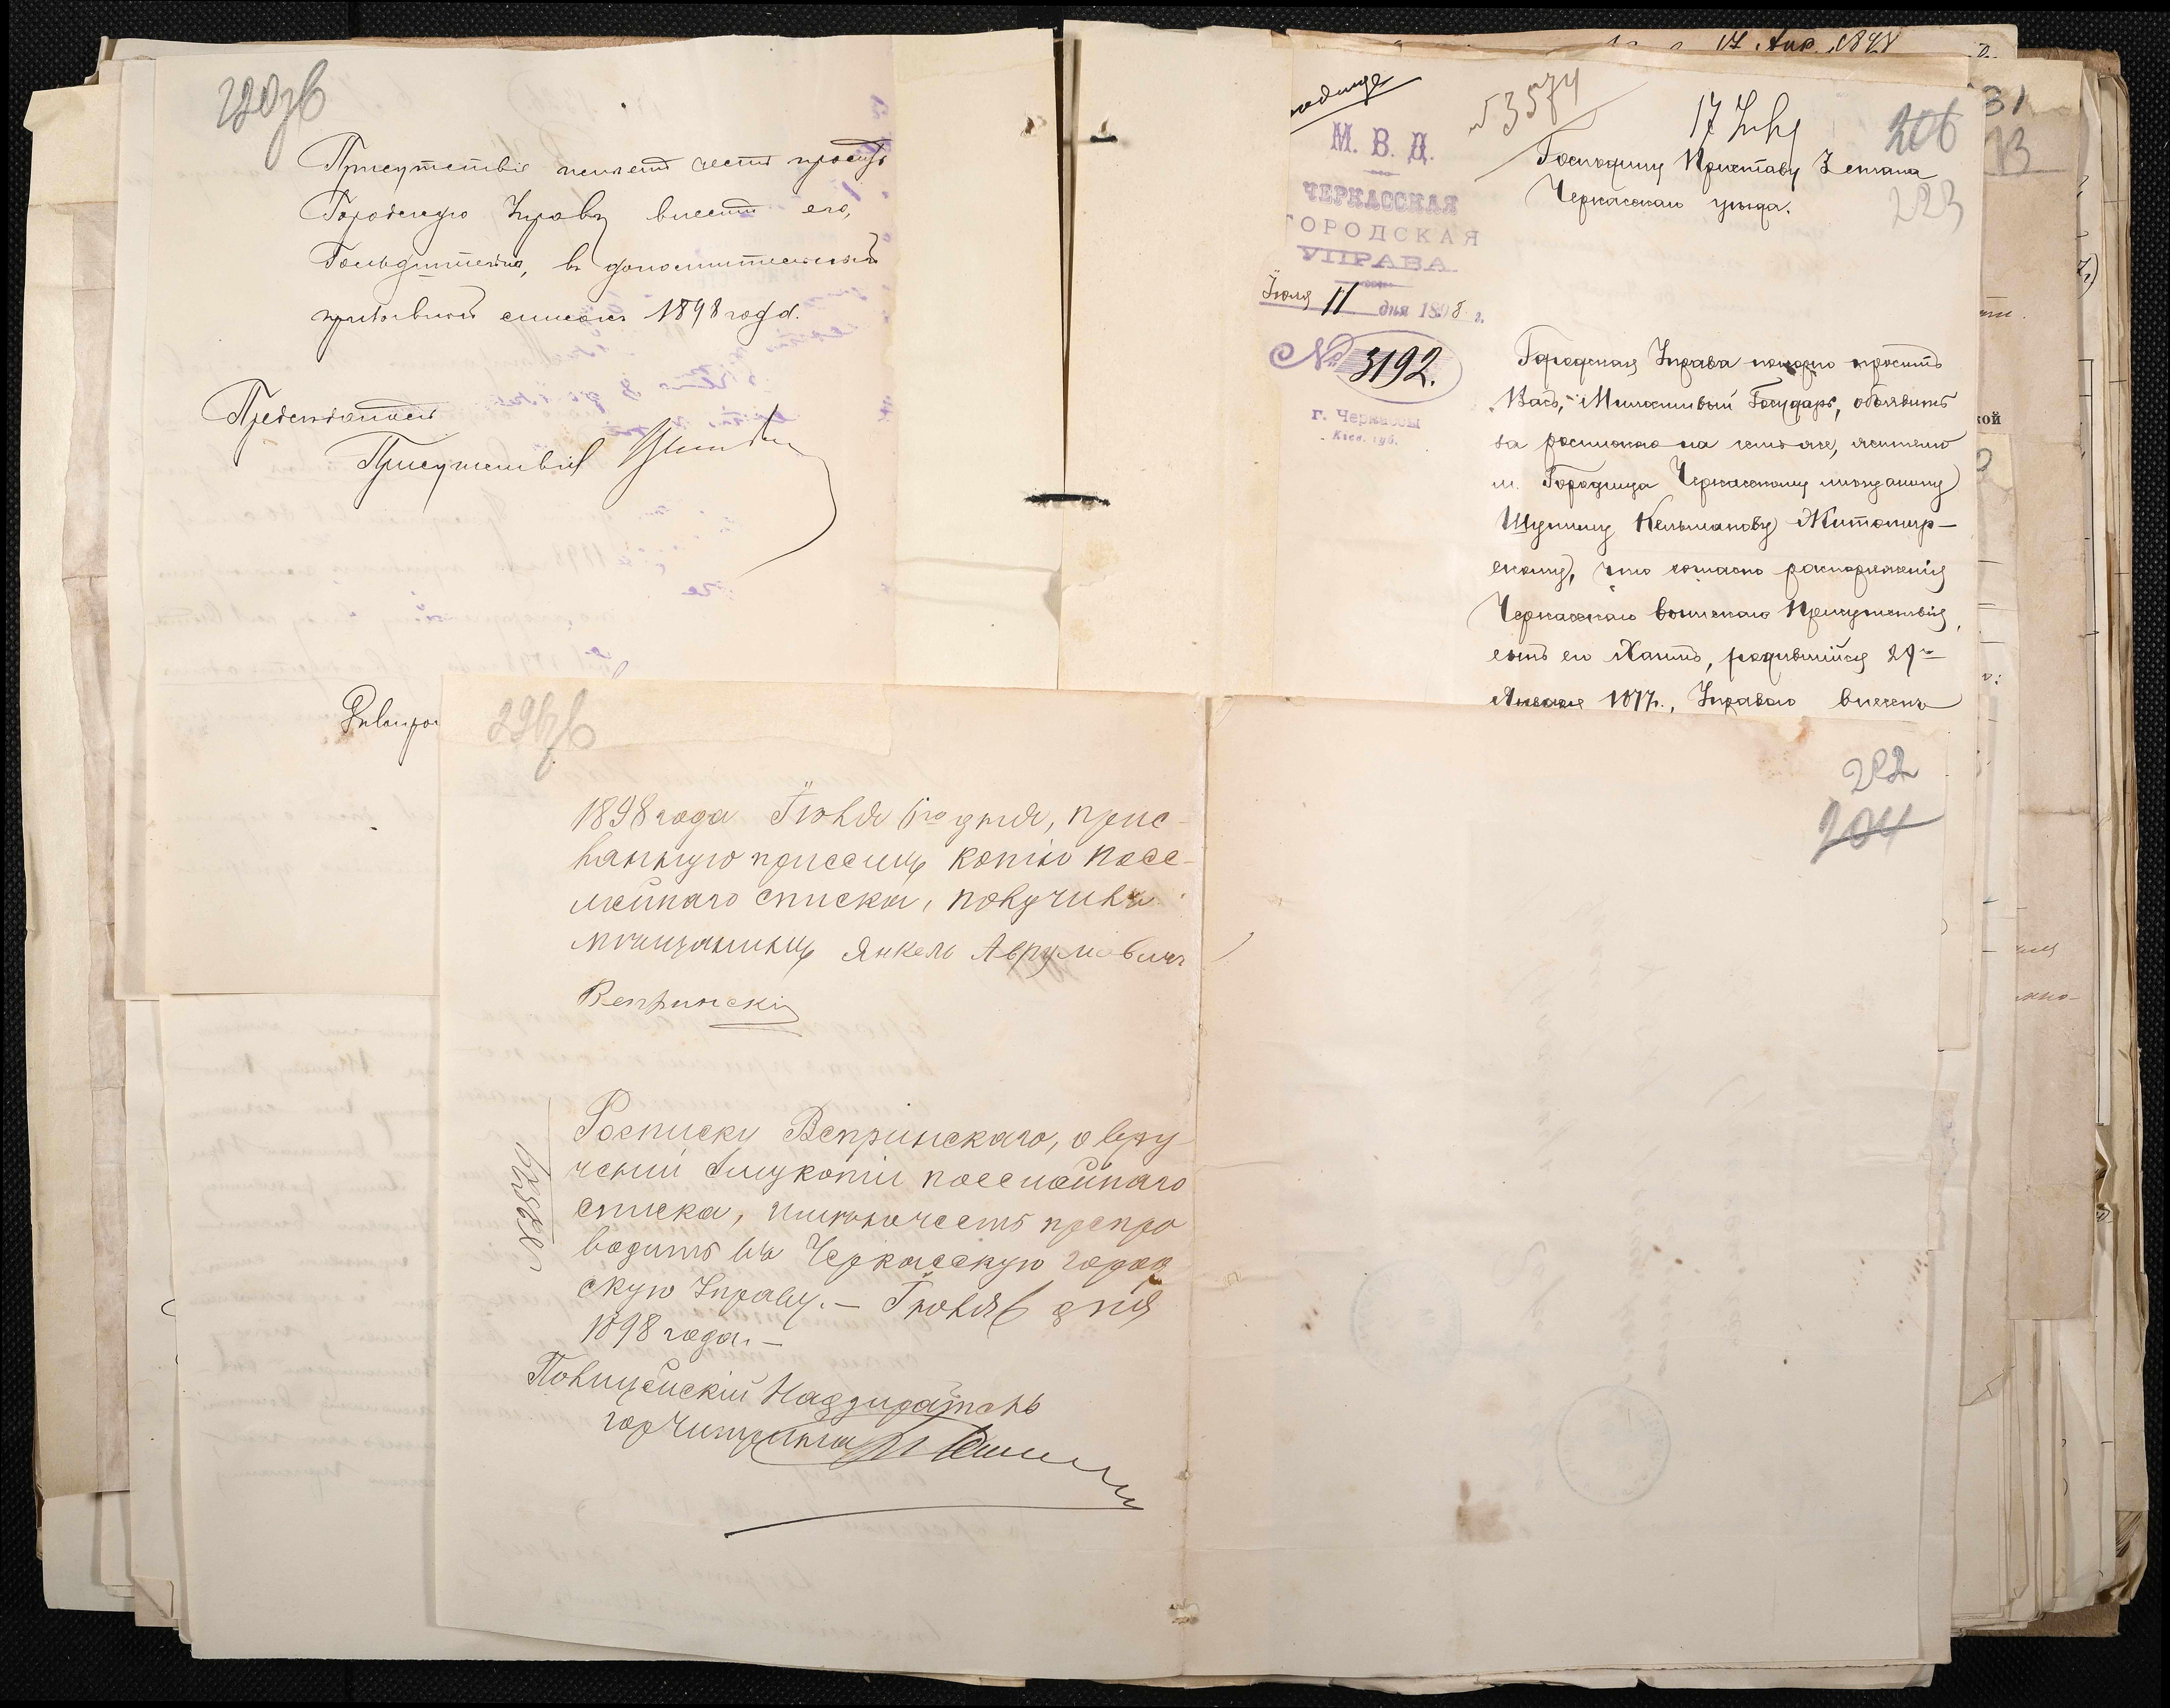 220 об
Присутствіе имѣетъ честь просить
Городскую Управу внести его,
Гольдштейна, въ дополнительный
призывной списокъ 1898 года.
Предсѣдатель
Присутствія
17 Апр. 1898
№ 3574
М. В. Д.
ЧЕРКАССКАЯ
ГОРОДСКАЯ
УПРАВА.
Іюля 11 дня 1898 г.
№ 3192.
г. Черкассы
Кіев. губ.
206
223
Господину Приставу 2 стана
Черкасскаго уѣзда.
Городская Управа покорно проситъ
Васъ, Милостивый Государь, объявить
за роспискою на семъ же, жителю
м. Городища Черкасскому мѣщанину
Шулиму Кельманову Житомир-
скому, что согласно распоряженія
Черкасскаго воинскаго Присутствія,
сынъ его Хаимъ, родившійся 29го
1877 г., Управою внесенъ
31
13
кой
1898 года Іюля 6го дня, прис-
ланную при семъ копію посе-
мейнаго списка, получилъ
мѣщанинъ Янкель Аврумовичъ
Вепринскій
Росписку Вепринскаго, о вру-
ченіи ему копіи посемейнаго
списка, имѣю честь препро
водить въ Черкасскую город
скую Управу. — Іюля 6 дня
1898 года. —
Полицейскій Надзиратель
222
204